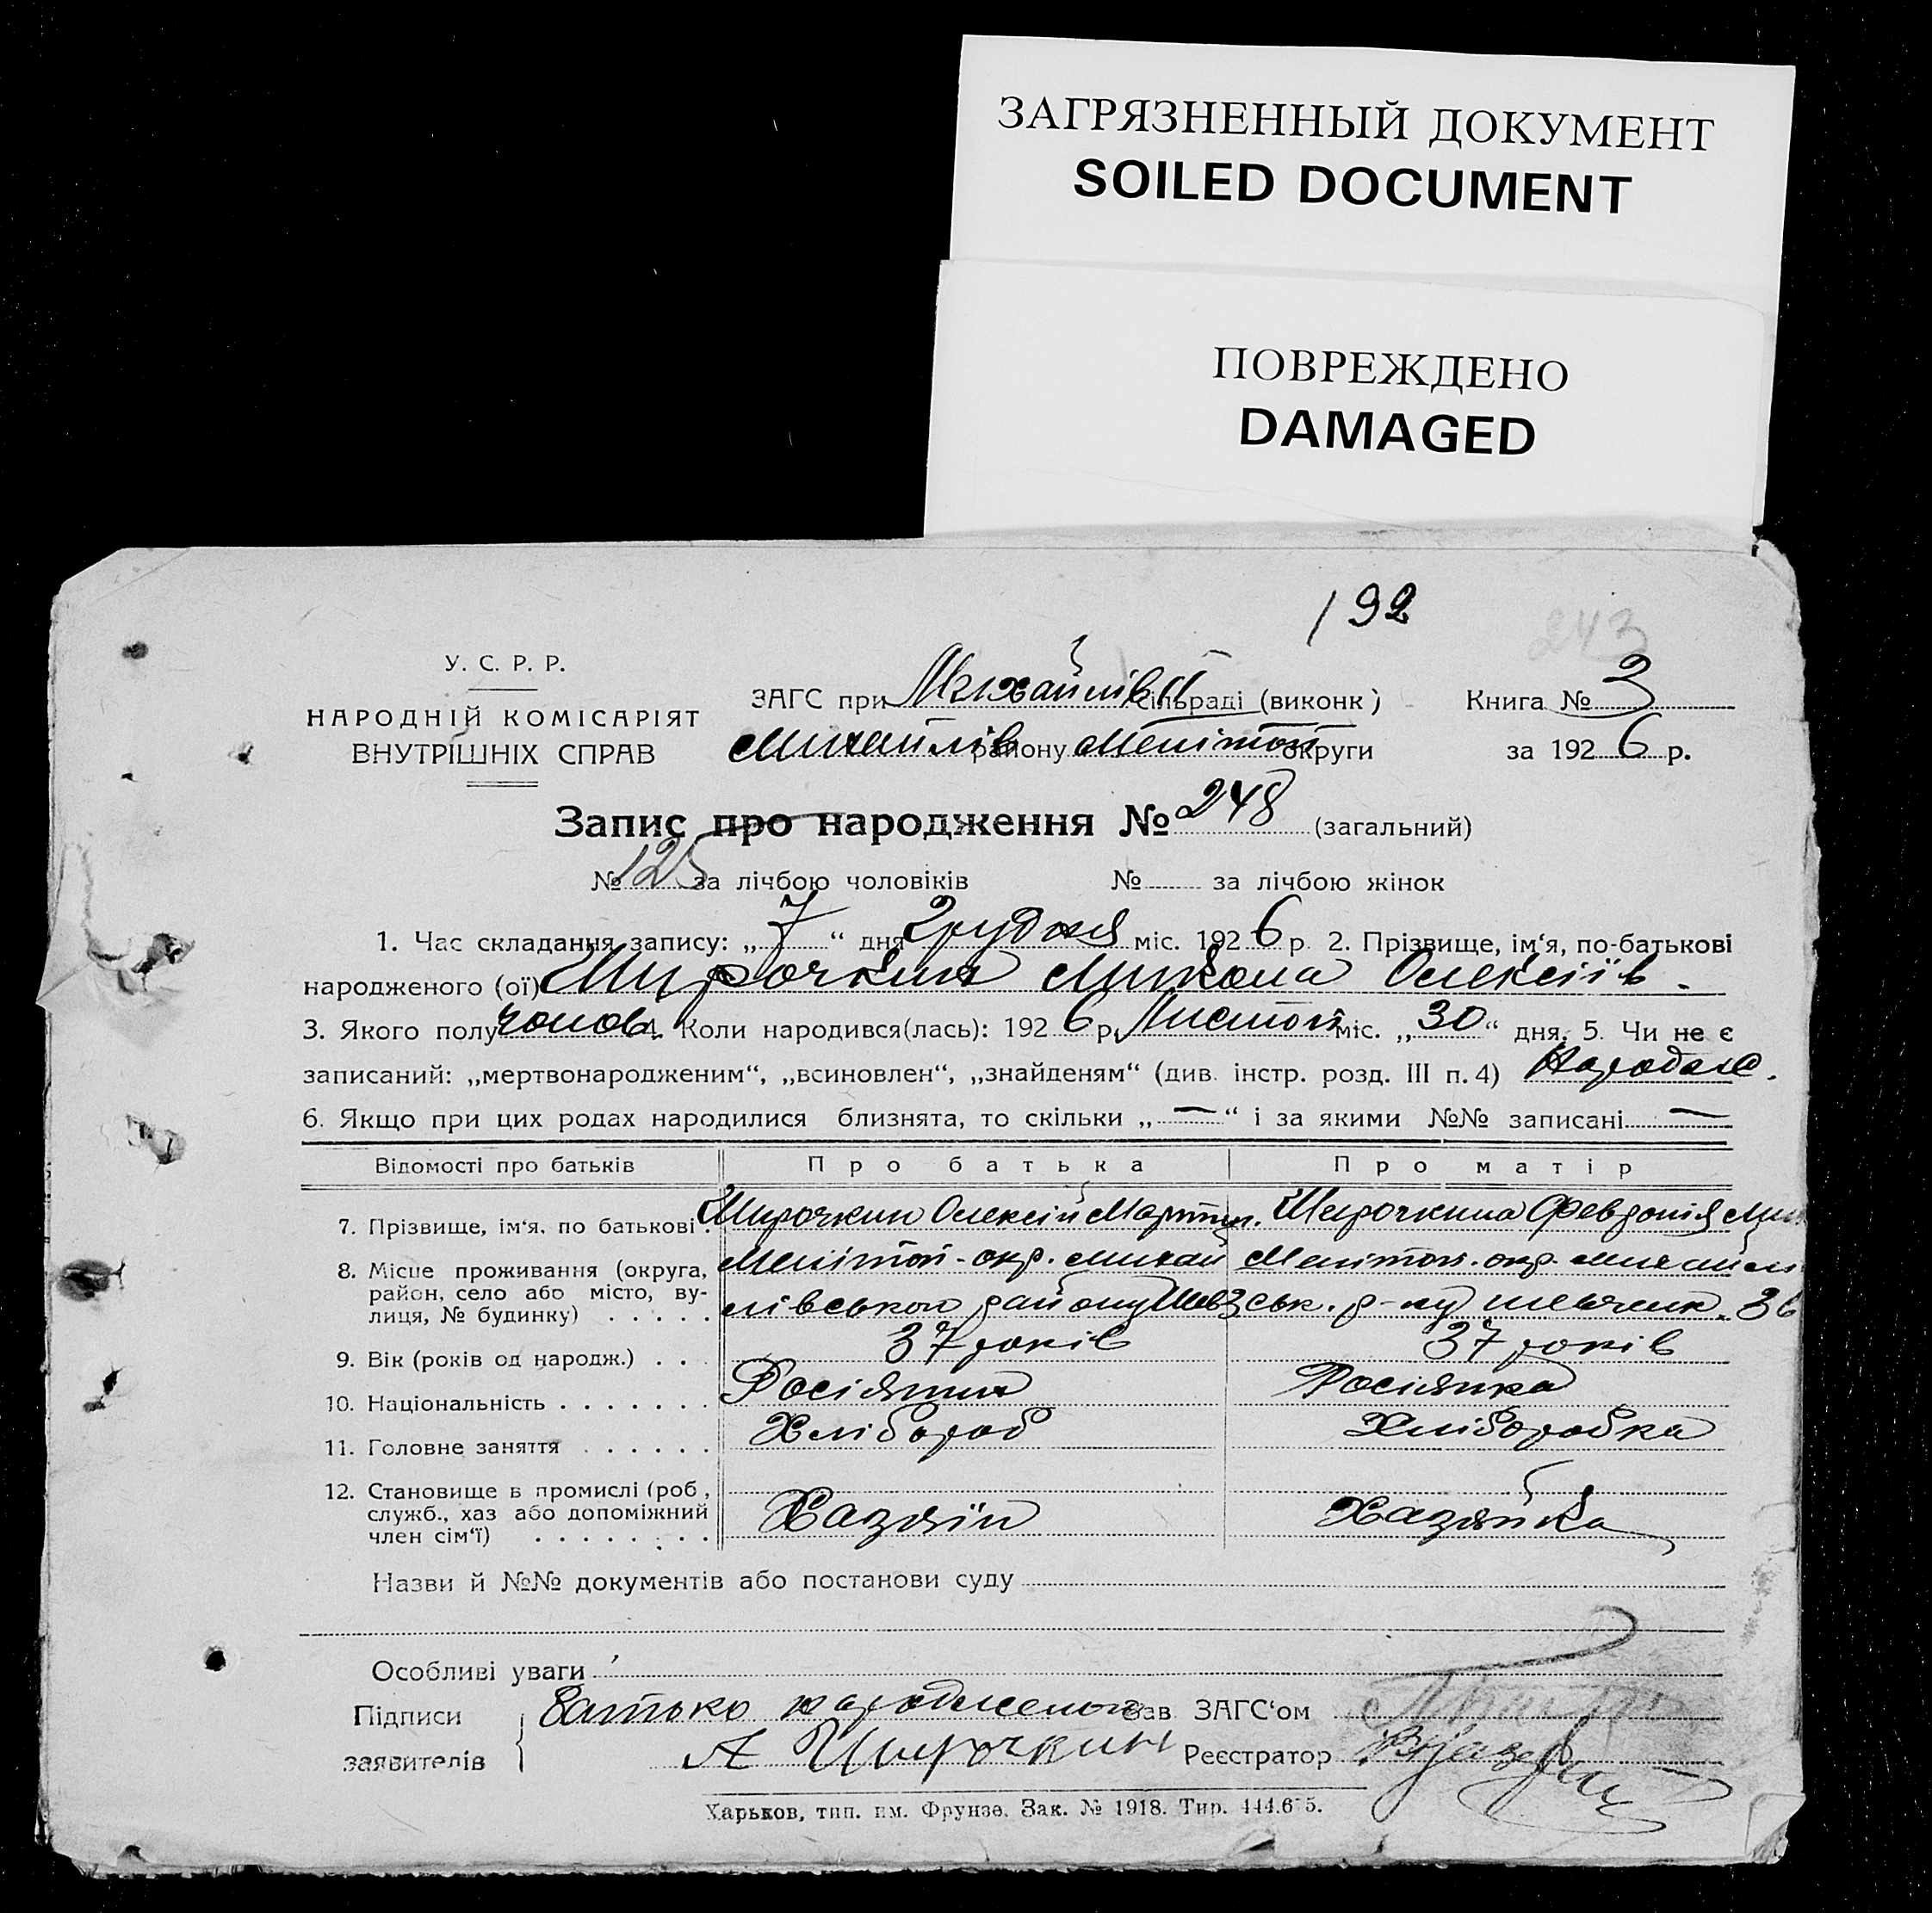 ЗАГРЯЗНЕННЫЙ ДОКУМЕНТ
SOILED DOCUMENT
ПОВРЕЖДЕНО
DAMAGED
192
243
У. С. Р. Р.
НАРОДНІЙ КОМІСАРІЯТ
ВНУТРІШНІХ СПРАВ
ЗАГС при Михайлівській сільраді (виконк) Книга № 3
Михайлів району Меліт́оп округи за 1926 р.
Запис про народження № 248 (загальний)
№ 125 за лічбою чоловіків № за лічбою жінок
1. Час складання запису: „7“ дня Грудня міс. 1926 р. 2. Прізвище, ім‘я, по-батькові
народженого (ої) Широчкин Микола Олексіїв.
3. Якого полу чолов. 4. Коли народився(лась): 1926 р. Листоп міс. „30“ дня. 5. Чи не є
записаний: „мертвонародженим“, „всиновлен“, „знайденям“ (див. інстр. розд. III п. 4)
6. Якщо при цих родах народилися близнята, то скільки „—“ і за якими №№ записані —
Відомості про батьків Про батька Про матір
7. Прізвище, ім‘я, по батькові . Широчкин Олексій Мартин. Широчкина Февронія
8. Місце проживання (округа, район, село або місто, вулиця, № будинку) . . . . .
Меліт́оп. окр. Михай Меліт́оп. окр. Михайлі
лівського району Шевч ськ. р-ну Шевченк. 36
9. Вік (років од народж.) . . . 37 років 37 років
10. Національність . . . . . . . Росіянин Росіянка
11. Головне заняття . . . . . . Хлібороб Хліборобка
12. Становище в промислі (роб., служб., хаз або допоміжний член сім‘ї) . . . . . . . . Хазяїн Хазяйка
Назви й №№ документів або постанови суду
Особливі уваги
Підписи заявителів
Батько народженого Зав ЗАГС‘ом
А Широчкин Реєстратор
Харьков, тип. им. Фрунзе. Зак. № 1918. Тир. 444.675.